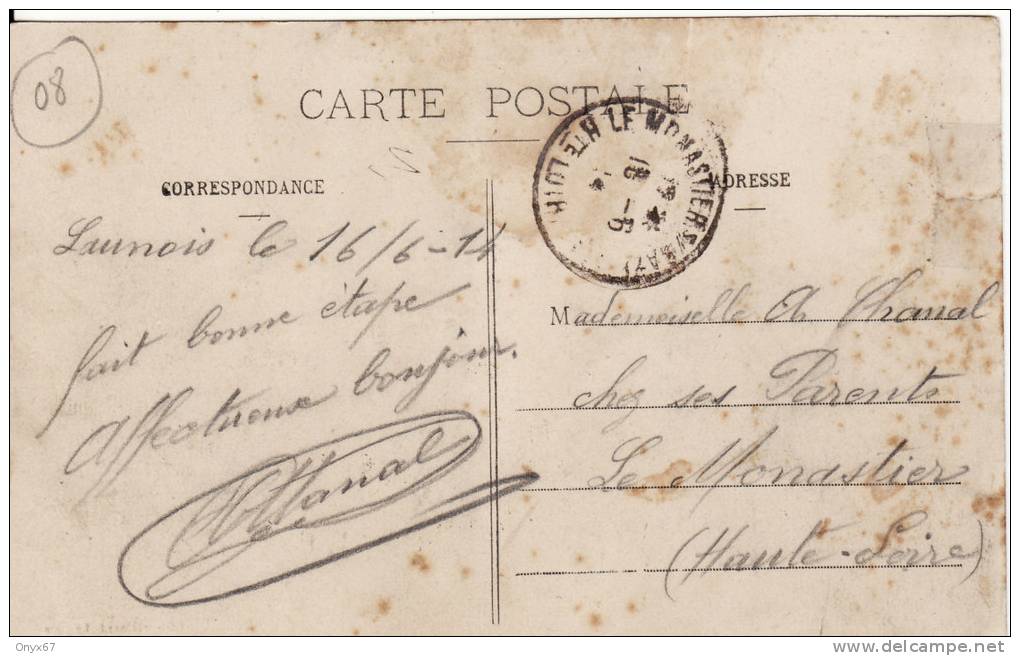 08
CARTE POSTALE
HTE LOIRE LE MONASTIER S/GAZ
18 -6
CORRESPONDANCE
ADRESSE
Launois le 16/6-14
fait bonne étape
Affectueux bonjour.
Chanal
Mademoiselle A Chanal
chez ses Parents
Le Monastier
(Haute-Loire)
Onyx67
delcampe.net